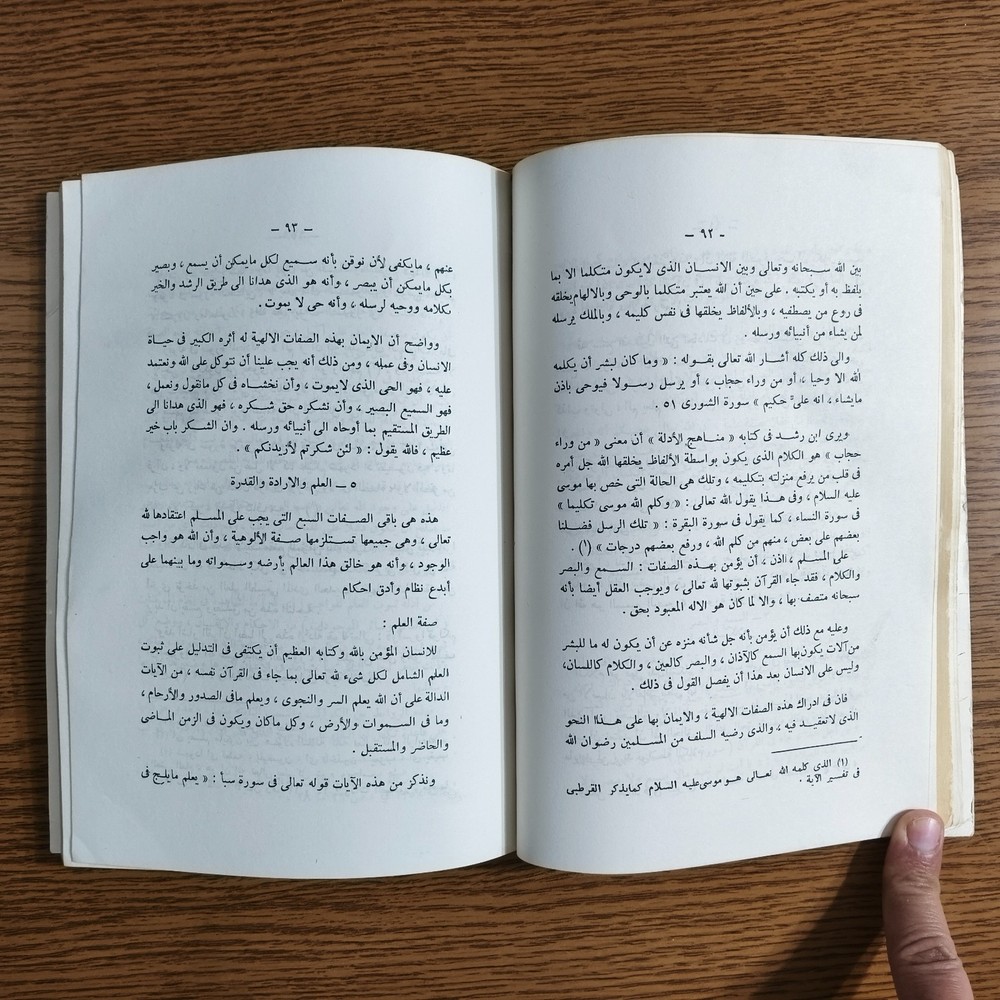 - ٩٢ -
بين الله سبحانه وتعالى وبين الانسان الذى لايكون متكلما الا بما
يلفظ به أو يكتبه . على حين أن الله يعتبر متكلما بالوحى وبالالهام يخلقه
فى روع من يصطفيه ، وبالألفاظ يخلقها فى نفس كليمه ، وبالملك يرسله
لمن يشاء من أنبيائه ورسله .
والى ذلك كله أشار الله تعالى بقوله : « وما كان لبشر أن يكلمه
الله الا وحيا ، أو من وراء حجاب ، أو يرسل رسولا فيوحى باذن
مايشاء ، انه علىّ حكيم » سورة الشورى ٥١ .
ويرى ابن رشد فى كتابه « مناهج الأدلة » أن معنى « من وراء
حجاب » هو الكلام الذى يكون بواسطة الألفاظ يخلقها الله جل أمره
فى قلب من يرفع منزلته بتكليمه ، وتلك هى الحالة التى خص بها موسى
عليه السلام ، وفى هذا يقول الله تعالى : « وكلم الله موسى تكليما »
فى سورة النساء ، كما يقول فى سورة البقرة : « تلك الرسل فضلنا
بعضهم على بعض ، منهم من كلم الله ، ورفع بعضهم درجات » (١) .
على المسلم ، اذن ، أن يؤمن بهذه الصفات : السمع والبصر
والكلام ، فقد جاء القرآن بثبوتها لله تعالى ، ويوجب العقل أيضا بأنه
سبحانه متصف بها ، والا لما كان هو الاله المعبود بحق .
وعليه مع ذلك أن يؤمن بأنه جل شأنه منزه عن أن يكون له ما للبشر
من آلات يكون بها السمع كالآذان ، والبصر كالعين ، والكلام كاللسان،
وليس على الانسان بعد هذا أن يفصل القول فى ذلك .
فان فى ادراك هذه الصفات الالهية ، والايمان بها على هذا النحو
الذى لاتعقيد فيه ، والذى رضيه السلف من المسلمين رضوان الله
(١) الذى كلمه الله تعالى هو موسى عليه السلام كمايذكر القرطبى
فى تفسير الآية .
- ٩٣ -
عنهم ، مايكفى لأن نوقن بأنه سميع لكل مايمكن أن يسمع ، وبصير
بكل مايمكن أن يبصر ، وأنه هو الذى هدانا الى طريق الرشد والخير
بكلامه ووحيه لرسله ، وأنه حى لا يموت .
وواضح أن الايمان بهذه الصفات الالهية له أثره الكبير فى حياة
الانسان وفى عمله ، ومن ذلك أنه يجب علينا أن نتوكل على الله ونعتمد
عليه ، فهو الحى الذى لايموت ، وأن نخشاه فى كل مانقول ونعمل ،
فهو السميع البصير ، وأن نشكره حق شكره ، فهو الذى هدانا الى
الطريق المستقيم بما أوحاه الى أنبيائه ورسله . وان الشكر باب خير
عظيم ، فالله يقول : « لئن شكرتم لأزيدنكم » .
٥ — العلم والارادة والقدرة
هذه هى باقى الصفات السبع التى يجب على المسلم اعتقادها لله
تعالى ، وهى جميعها تستلزمها صفة الألوهية ، وأن الله هو واجب
الوجود ، وأنه هو خالق هذا العالم بأرضه وسمواته وما بينهما على
أبدع نظام وأدق احكام
صفة العلم :
للانسان المؤمن بالله وكتابه العظيم أن يكتفى فى التدليل على ثبوت
العلم الشامل لكل شىء لله تعالى بما جاء فى القرآن نفسه ، من الآيات
الدالة على أن الله يعلم السر والنجوى ، ويعلم مافى الصدور والأرحام ،
وما فى السموات والأرض ، وكل ماكان ويكون فى الزمن الماضى
والحاضر والمستقبل .
ونذكر من هذه الآيات قوله تعالى فى سورة سبأ : « يعلم مايلج فى